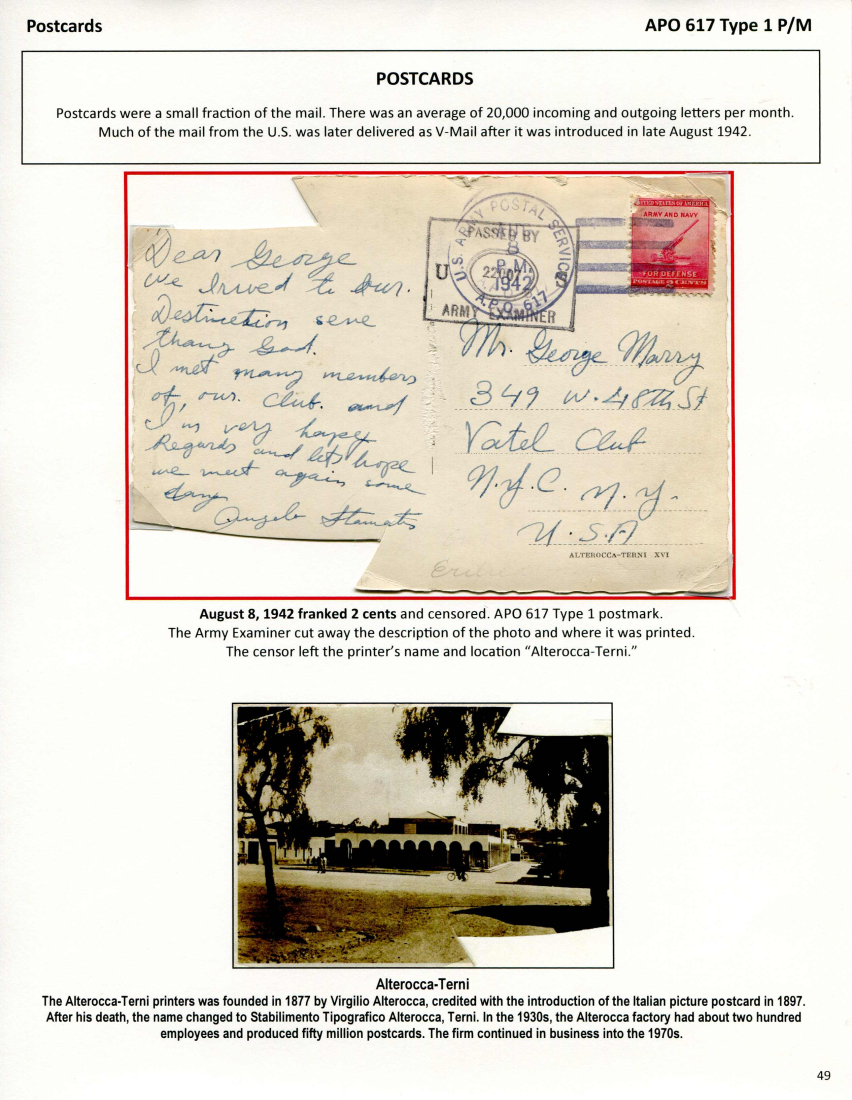 Postcards
APO 617 Type 1 P/M
POSTCARDS
Postcards were a small fraction of the mail. There was an average of 20,000 incoming and outgoing letters per month.
Much of the mail from the U.S. was later delivered as V-Mail after it was introduced in late August 1942.
Dear George
we
Destinetion
thang God.
I met many members
of, our. Club. and
I'm very happy
Regards and lets hope
we meet again some
day
Angelo
U.S. ARMY POSTAL SERVICE
8
P.M.
1942
A.P.O. 617
PASSED BY
U
ARMY EXAMINER
UNITED STATES OF AMERICA
ARMY AND NAVY
FOR DEFENSE
POSTAGE 2 CENTS
Mr. George Marry
349 W. 48th St
Vatel Club
N.Y.C. N.Y.
U.S.A
ALTEROCCA-TERNI XVI
August 8, 1942 franked 2 cents and censored. APO 617 Type 1 postmark.
The Army Examiner cut away the description of the photo and where it was printed.
The censor left the printer's name and location “Alterocca-Terni.”
Alterocca-Terni
The Alterocca-Terni printers was founded in 1877 by Virgilio Alterocca, credited with the introduction of the Italian picture postcard in 1897.
After his death, the name changed to Stabilimento Tipografico Alterocca, Terni. In the 1930s, the Alterocca factory had about two hundred
employees and produced fifty million postcards. The firm continued in business into the 1970s.
49